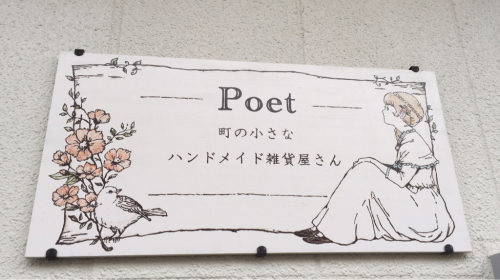 Poet
町の小さな
ハンドメイド雑貨屋さん